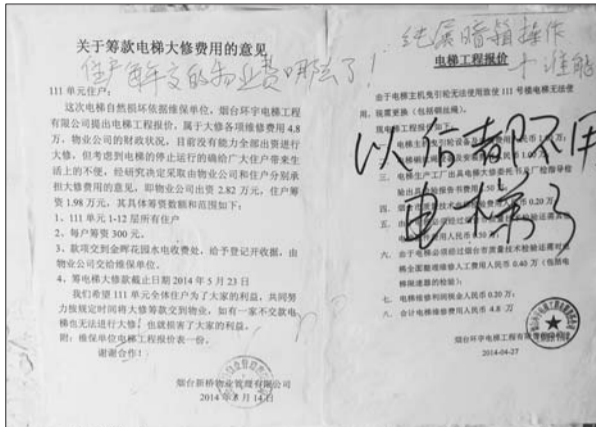 关于筹款电梯大修费用的意见
住户每年交的物业费哪去了！
111 单元住户：
这次电梯自然损坏依据维保单位，烟台环宇电梯工程
有限公司提出电梯工程报价，属于大修各项维修费用 4.8
万，物业公司的财政状况，目前没有能力全部出资进行
大修，但考虑到电梯的停止运行的确给广大住户带来生
活上的不便，经研究决定采取由物业公司和住户分别承
担大修费用的意见，即物业公司出资 2.82 万元，住户筹
资 1.98 万元，其具体筹资数额和范围如下：
1、111 单元 1-12 层所有住户
2、每户筹资 300 元。
3、款项交到金晖花园水电收费处，给予登记开收据，由
物业公司交给维保单位。
4、筹电梯大修款截止日期 2014 年 5 月 23 日
我们希望 111 单元全体住户为了大家的利益，共同努
力按规定时间将大修筹款交到物业，如有一家不交款电
梯也无法进行大修，也就损害了大家的利益。
附：维保单位电梯工程报价表一份。
谢谢合作！
烟台新桥物业管理有限公司
2014 年 5 月 14 日
纯属暗箱操作
电梯工程报价
由于电梯主机曳引轮无法使用致使 111 号楼电梯无法使
用，现需更换（包括钢丝绳）。
现电梯工程报价如下：
以后都不用
电梯了
一、电梯主
三、电梯生产工厂出具电梯大修委托书及厂检指导检
六、由于电梯必须经过烟台市质量技术检验还需对电
梯全面整理维修人工费用人民币 0.40 万（包括电
梯限速器的检验）；
七、电梯维修利润税金人民币 0.20 万；
八、合计电梯维修费用人民币 4.8 万
烟台环宇电梯工程有限
2014-04-27